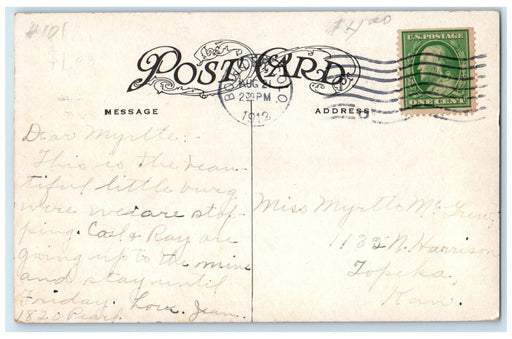 #10
$4.00
POST CARD
U.S. POSTAGE
ONE CENT
BOULDER
AUG 21
2 30 PM
1912
MESSAGE
ADDRESS
Dear Myrtle:
This is the beau-
tiful little burg
were we are stop-
ping. Carl & Ray are
going up to the mine
and stay until
Friday. Love, Jean.
1820 Pearl.
Miss Myrtle McGrew
1135 N. Harrison
Topeka,
Kan.